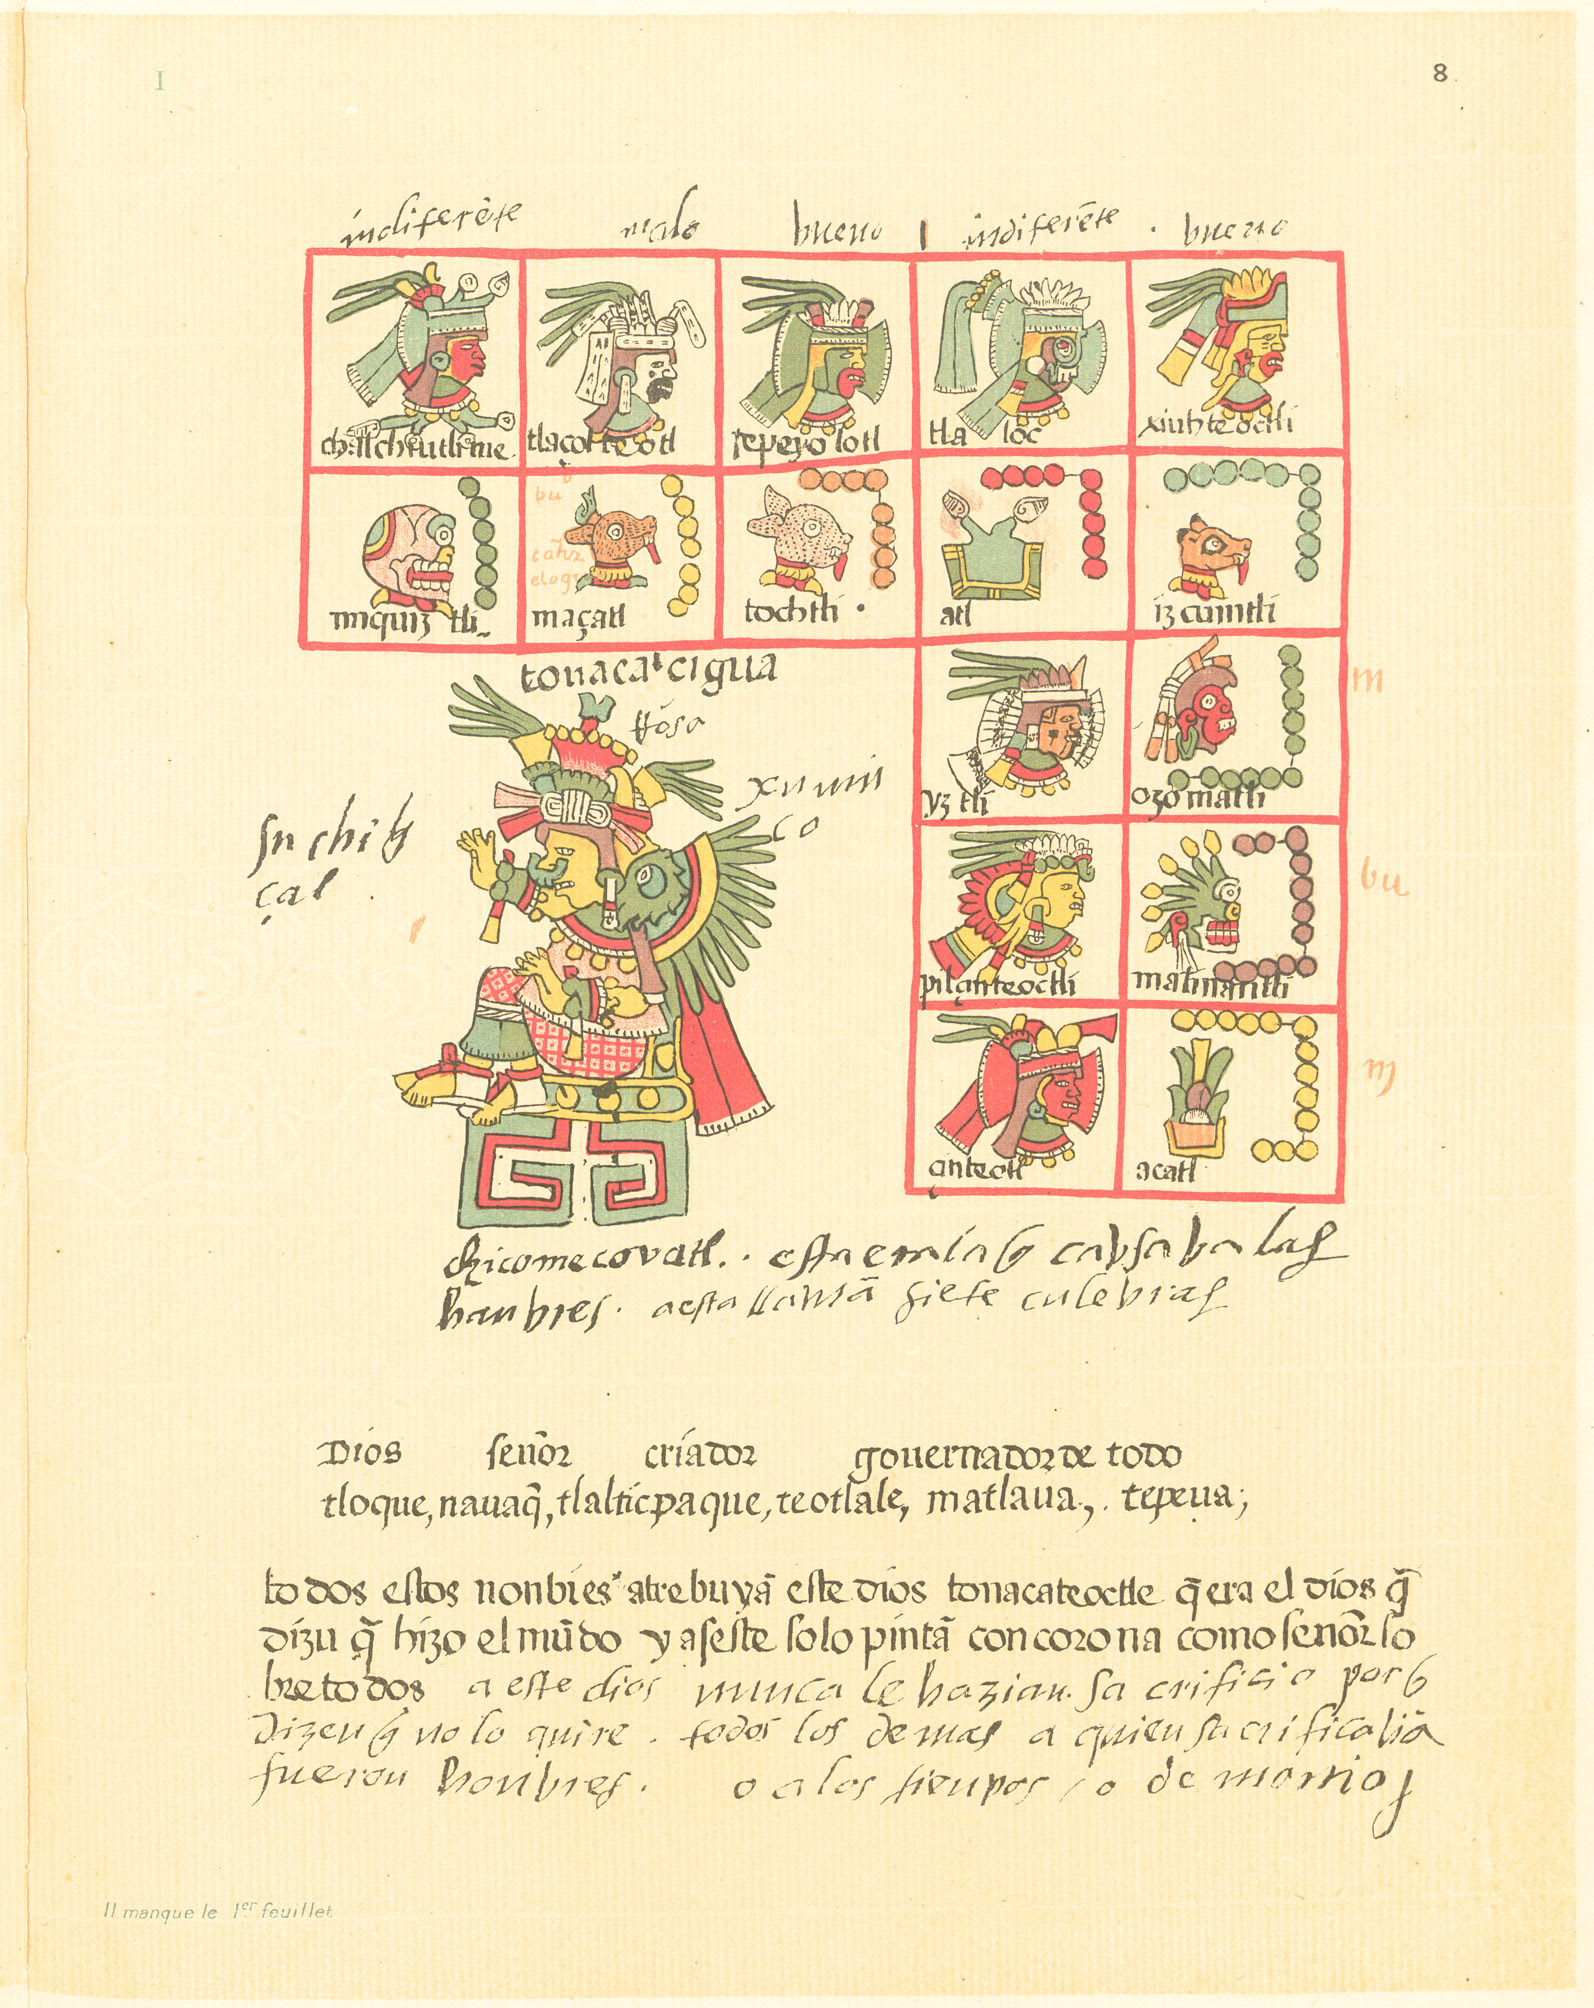 I
8
indiferẽte malo bueno indiferẽte bueno
chalchiutlicue tlaçolteotl tepeyolotl tlaloc xiuhteoctli
bu
miquiztli maçatl tochtli atl izcuintli
tonacacigua
m
yztli ozomatli
suchiq̃
çal
bu
pilçinteoctli malinantli
m
çinteotl acatl
chicomecovatl. esta era la q̃ cavsava las
hanbres. a esta llamã siete culebras
Dios señor criador governador de todo
tloque, nauaq̃, tlalticpaque, teotlale, matlaua, tepeua;
todos estos nonbres atrebuyã este dios tonacateoctle q̃ era el dios q̃
dizẽ q̃ hizo el mũdo y aseste solo pintã con corona como señor so
bre todos a este dios nunca le hazian sacrificio porq̃
dizen q̃ no lo quire. todos los demas a quien sacrificabã
fueron honbres. o a los tienpos / o demonios
Il manque le 1er feuillet